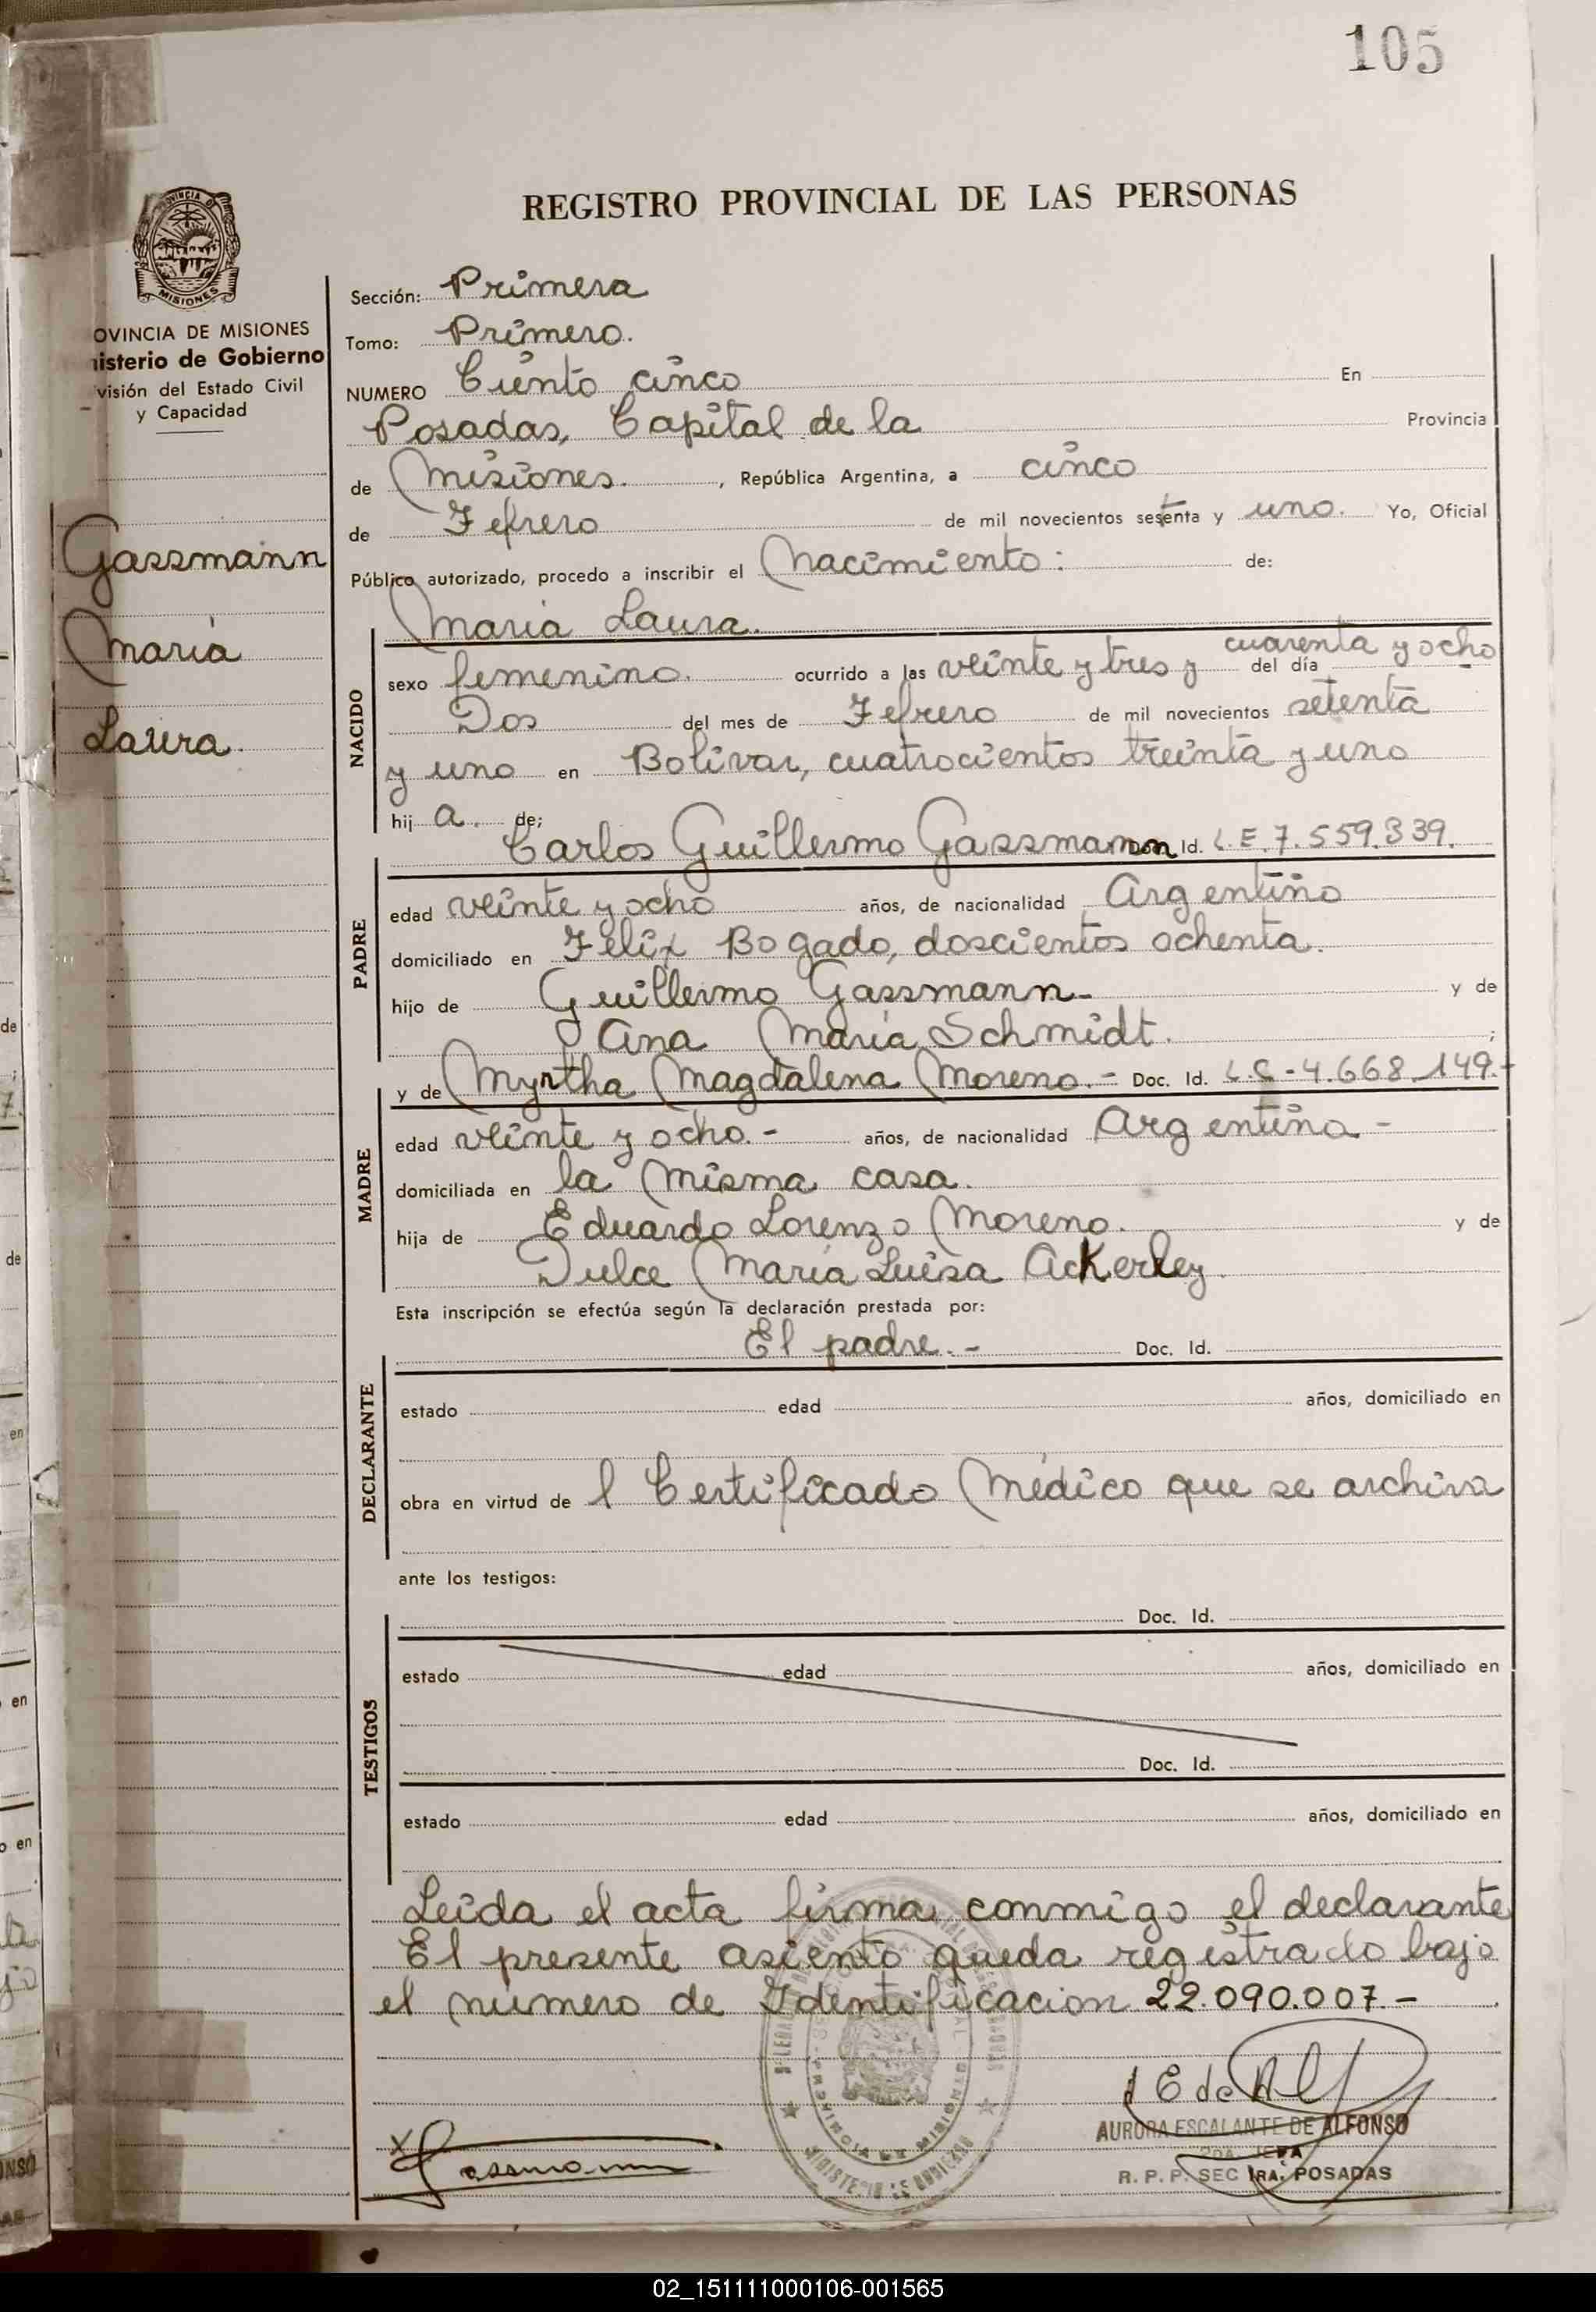 105
REGISTRO PROVINCIAL DE LAS PERSONAS
PROVINCIA DE
MISIONES
OVINCIA DE MISIONES
nisterio de Gobierno
visión del Estado Civil
y Capacidad
Gassmann
María
Laura.
Sección: Primera
Tomo: Primero.
NUMERO Ciento cinco En
Posadas, Capital de la Provincia
de Misiones. , República Argentina, a cinco
de Febrero de mil novecientos setenta y uno. Yo, Oficial
Público autorizado, procedo a inscribir el Nacimiento: de:
María Laura.
NACIDO
sexo femenino. ocurrido a las veinte y tres y cuarenta y ocho del día
Dos del mes de Febrero de mil novecientos setenta
y uno en Bolivar, cuatrocientos treinta y uno
hij a. de;
Carlos Guillermo Gassmann Doc. Id. L.E. 7.559.339.
PADRE
edad veinte y ocho años, de nacionalidad Argentino
domiciliado en Felix Bogado, doscientos ochenta.
hijo de Guillermo Gassmann- y de
Ana María Schmidt. ;
y de Myrtha Magdalena Moreno.- Doc. Id. L.C-4.668.149.-
MADRE
edad veinte y ocho.- años, de nacionalidad Argentina-
domiciliada en la misma casa.
hija de Eduardo Lorenzo Moreno. y de
Dulce María Luisa Ackerley.
Esta inscripción se efectúa según la declaración prestada por:
El padre.- Doc. Id.
DECLARANTE
estado edad años, domiciliado en
obra en virtud de l Certificado Médico que se archiva
ante los testigos:
Doc. Id.
TESTIGOS
estado edad años, domiciliado en
Doc. Id.
estado edad años, domiciliado en
Leida el acta firma conmigo el declarante
El presente asiento queda registrado bajo
el número de Identificacion 22.090.007.-
Gassmann
AURORA ESCALANTE DE ALFONSO
2DA. JEFA
R. P. P. SEC 1RA. POSADAS
02_151111000106-001565